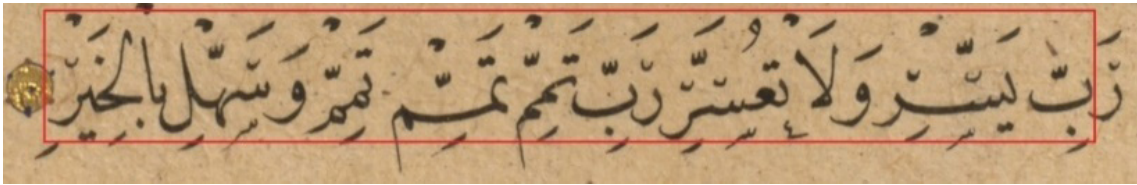 رَبِّ يَسِّرْ وَلَا تُعَسِّرْ رَبِّ تَمِّمْ تَمِّمْ تَمِّمْ وَسَهِّلْ بِالْخَيْرِ